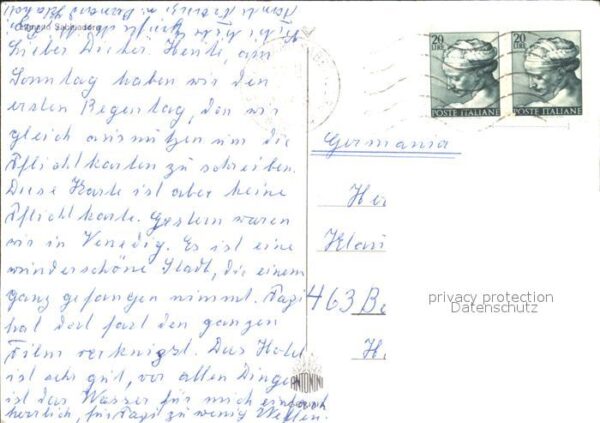 Lignano Sabbiadoro
Lieber Dieter. Heute, am
Sonntag haben wir den
ersten Regentag, den wir
gleich ausnützen um die
Pflichtkarten zu schreiben.
Diese Karte ist aber keine
Pflichtkarte. Gestern waren
wir in Venedig. Es ist eine
wunderschöne Stadt, die einem
ganz gefangen nimmt. Papi
hat dort fast den ganzen
Film verknipst. Das Hotel
ist sehr gut, vor allen Dingen
ist das Wasser für mich einfach
herrlich, für Papi zu wenig Wellen.
20 LIRE
POSTE ITALIANE
20 LIRE
POSTE ITALIANE
Germania
He
Klau
463 Bo
H
privacy protection
Datenschutz
ANTONINI